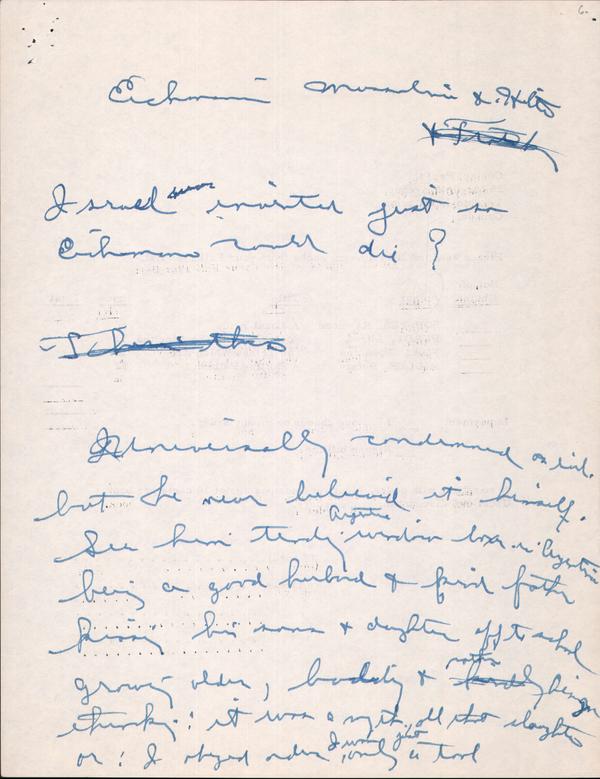 6.
Eichmann Mussolini & Hitler
Israel was invented just so
Eichmann could die?
Universally condemned as evil.
but he never believed it himself.
Argentine
See him tending window box in Argentina
being a good husband & fond father
kissing his sons & daughter off to school
growing older, baldly &
thinking: it was a myth, all that slaughter
I was just
or: I obeyed orders, only a tool